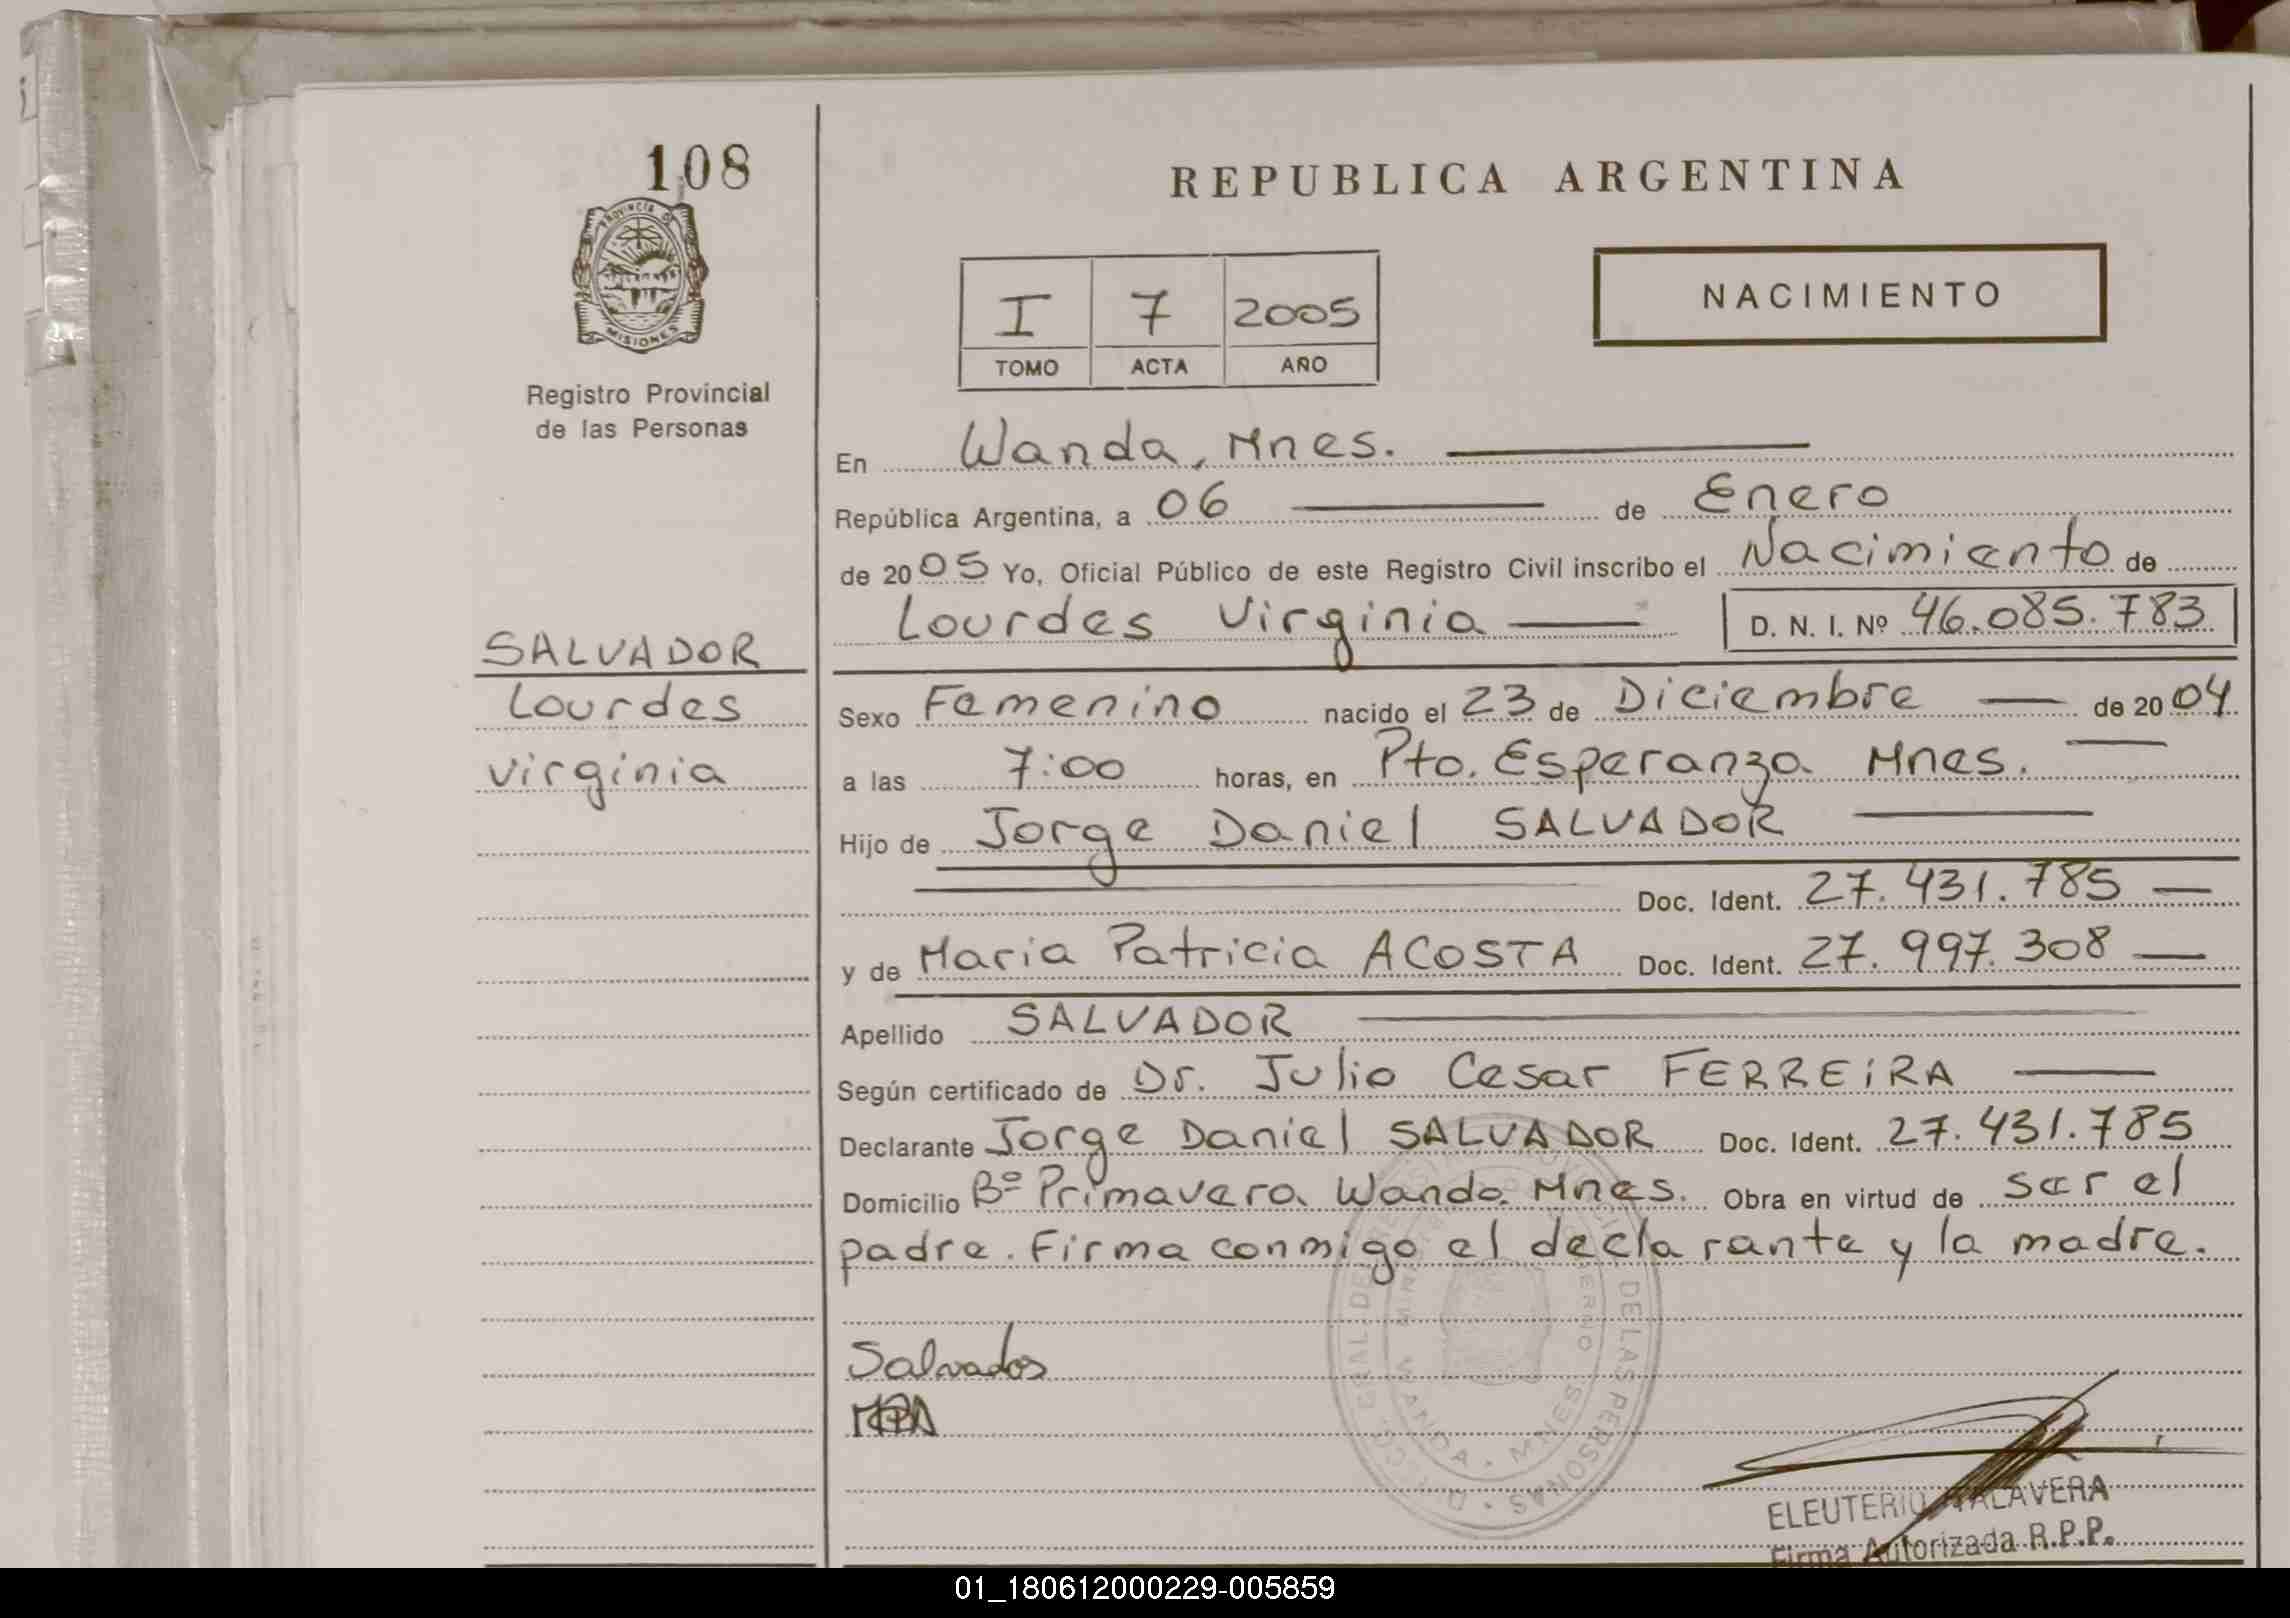 108
PROVINCIA DE
MISIONES
Registro Provincial
de las Personas
SALVADOR
Lourdes
Virginia
REPUBLICA ARGENTINA
I 7 2005
TOMO ACTA AÑO
NACIMIENTO
En Wanda, Mnes.
República Argentina, a 06 de Enero
de 2005 Yo, Oficial Público de este Registro Civil inscribo el Nacimiento de
Lourdes Virginia D. N. I. Nº 46.085.783
Sexo Femenino nacido el 23 de Diciembre de 2004
a las 7:00 horas, en Pto. Esperanza Mnes.
Hijo de Jorge Daniel SALVADOR
Doc. Ident. 27.431.785
y de Maria Patricia ACOSTA Doc. Ident. 27.997.308
Apellido SALVADOR
Según certificado de Dr. Julio Cesar FERREIRA
Declarante Jorge Daniel SALVADOR Doc. Ident. 27.431.785
Domicilio Bº Primavera Wanda Mnes. Obra en virtud de ser el
padre. Firma conmigo el declarante y la madre.
Salvador
DE LAS PERSONAS
WANDA - MNES
ELEUTERIO TALAVERA
Firma Autorizada R.P.P.
01_180612000229-005859